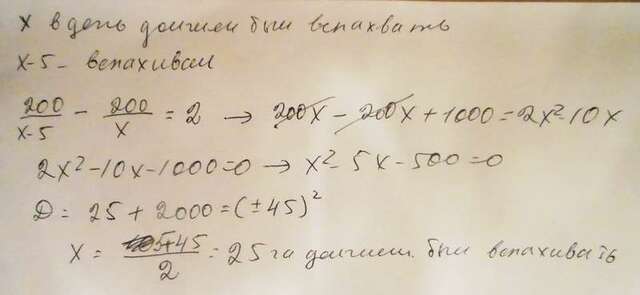 х в день должен был вспахвать
х-5 - вспахивал
200/(х-5) - 200/х = 2 → 200х - 200х + 1000 = 2х² - 10х
2х² - 10х - 1000 = 0 → х² - 5х - 500 = 0
D = 25 + 2000 = (±45)²
х = (5+45)/2 = 25 га должен был вспахивать